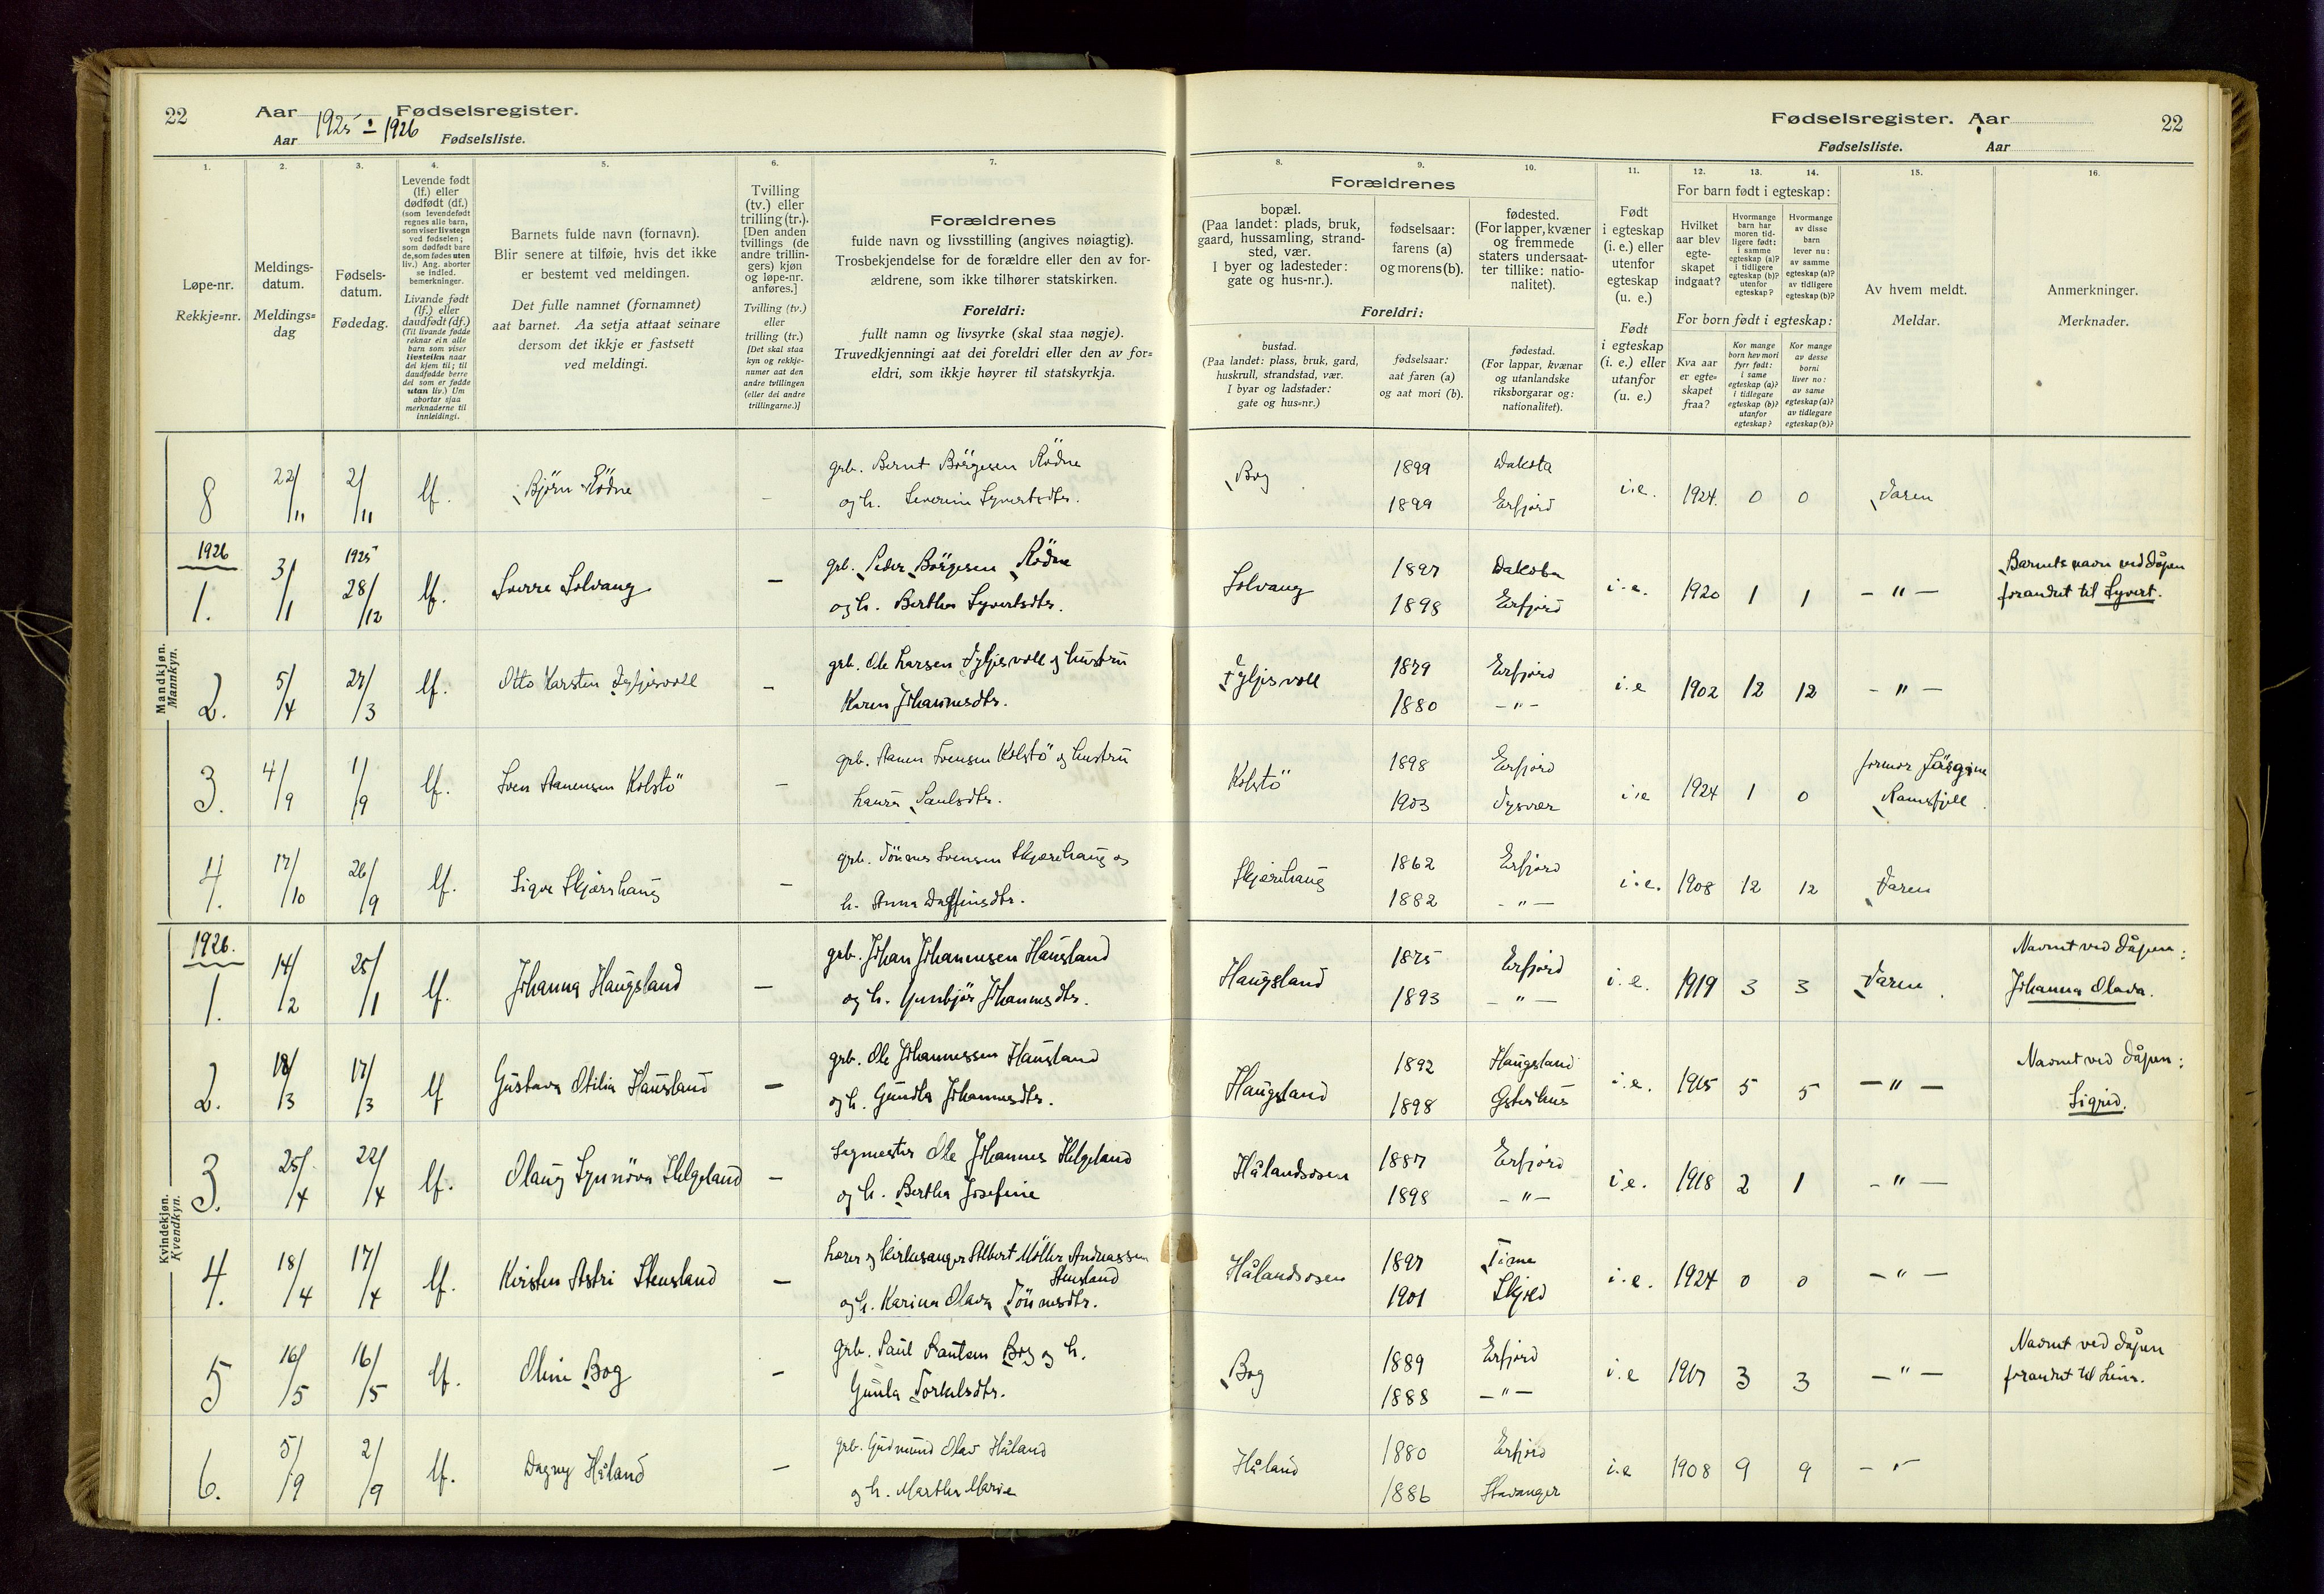 22 Aar 1925 - 1926 Fødselsregister.
Aar Fødselsliste.
1. 2. 3. 4. 5. 6. 7.
Løpe-nr.
Rekkje=nr.
Meldings-
datum.
Meldings=
dag
Fødsels-
datum.
Fødedag.
Levende født
(lf.) eller
dødfødt (df.)
(som levendefødt
regnes alle barn,
som viser livstegn
ved fødselen;
som dødfødt bare
de, som fødes uten
liv.) Ang. aborter
se indled.
bemerkninger.
Livande født
(lf.) eller
daudfødt (df.)
(Til livande fødde
reknar ein alle
barn som viser
livsteikn naar
dei kjem til; til
daudfødde berre
dei som er fødde
utan liv.) Um
abortar sjaa
merknaderne til
innleidingi.
Barnets fulde navn (fornavn).
Blir senere at tilføie, hvis det ikke
er bestemt ved meldingen.
Det fulle namnet (fornamnet)
aat barnet. Aa setja attaat seinare
dersom det ikkje er fastsett
ved meldingi.
Tvilling
(tv.) eller
trilling (tr.).
[Den anden
tvillings (de
andre trillin-
gers) kjøn
og løpe-nr.
anføres.]
Tvilling (tv.)
eller
trilling (tr.)
[Det skal staa
kyn og rekkje-
numer aat den
andre tvillingen
(eller dei andre
trillingarne.)]
Forældrenes
fulde navn og livsstilling (angives nøiagtig).
Trosbekjendelse for de forældre eller den av for-
ældrene, som ikke tilhører statskirken.
Foreldri:
fullt namn og livsyrke (skal staa nøgje).
Truvedkjenningi aat dei foreldri eller den av for=
eldri, som ikkje høyrer til statskyrkja.
Mandkjøn.
Mannkyn.
8 22/11 2/11 lf. Björn Rödne - grb. Bernt Börgesen Rödne
og h. Severine Syvertsdtr.
1926
1. 3/1 1925 28/12 lf. Sverre Solvang - grb. Peder Börgesen Rödne
og h. Bertha Syvertsdtr.
2. 5/4 27/3 lf. Otto Karsten Fyljesvoll - grb. Ole Larsen Fyljesvoll og hustru
Karen Johannesdtr.
3. 4/9 1/9 lf. Sven Aanensen Kolstö - grb. Aanen Svensen Kolstö og hustru
Laura Paulsdtr.
4. 17/10 26/9 lf. Sigve Skjærehaug - grb. Tönnes Svensen Skjærehaug og
h. Anna Dagfinsdtr.
Kvindekjøn.
Kvendkyn.
1926.
1. 14/2 25/1 lf. Johanna Haugsland - grb. Johan Johannesen Hausland
og h. Gunbjör Johannesdtr.
2. 18/3 17/3 lf Gustava Otilia Hausland - grb. Ole Johannessen Hausland
og h. Gundla Johannesdtr.
3. 25/4 22/4 lf. Olaug Synnöva Helgeland - Sagmester Ole Johannes Helgeland
og h. Bertha Josefine
4. 18/4 17/4 lf. Kirsten Astri Stensland - Lærer og kirkesanger Albert Möller Andreassen
Stensland
og h. Karina Olava Tönnesdtr.
5 16/5 16/5 lf. Oline Bog - grb. Paul Paulsen Bog og h.
Gunla Torkelsdtr.
6. 5/9 2/9 lf. Dagny Håland - grb. Gudmund Olav Håland
og h. Martha Marie
Fødselsregister. Aar 22
Fødselsliste. Aar
8. 9. 10. 11. 12. 13. 14. 15. 16.
Forældrenes
bopæl.
(Paa landet: plads, bruk,
gaard, hussamling, strand-
sted, vær.
I byer og ladesteder:
gate og hus-nr.).
fødselsaar:
farens (a)
og morens (b).
fødested.
(For lapper, kvæner
og fremmede
staters undersaat-
ter tillike: natio-
nalitet).
Foreldri:
bustad.
(Paa landet: plass, bruk, gard,
huskrull, strandstad, vær.
I byar og ladstader:
gate og hus=nr.)
fødselsaar:
aat faren (a)
og aat mori (b).
fødestad.
(For lappar, kvænar
og utanlandske
riksborgarar og:
nationalitet).
Født
i egteskap
(i. e.) eller
utenfor
egteskap
(u. e.)
Født
i egteskap
(i. e.) eller
utanfor
(u. e.)
For barn født i egteskap:
Hvilket
aar blev
egte-
skapet
indgaat?
Hvormange
barn har
moren tid-
ligere født:
i samme
egteskap (a)?
i tidligere
egteskap (b)?
utenfor
egteskap?
Hvormange
av disse
barn
lever nu:
av samme
egteskap (a)?
av tidligere
egteskap (b)?
For born født i egteskap:
Kva aar
er egte=
skapet
fraa?
Kor mange
born hev mori
fyrr født:
i same
egteskap (a)?
i tidlegare
egteskap (b)?
utanfor
egteskap?
Kor mange
av desse
borni
liver no:
av same
egteskap (a)?
av tidlegare
egteskap (b)?
Av hvem meldt.
Meldar.
Anmerkninger.
Merknader.
Bog 1899 Dakota i.e. 1924. 0 0 Faren
1899 Erfjord
Solvang 1897 Dakota i.e. 1920 1 1 - " - Barnets navn ved dåpen
1898 Erfjord forandret til Syvert.
Fyljesvoll 1879 Erfjord i.e 1902 12 12 - " -
1880 - " -
Kolstö 1898 Erfjord i.e 1924 1 0 formor Jörgine
1903 Tysvær Ramsfjell
Skjærehaug 1862 Erfjord i.e. 1908 12 12 Faren
1882 - " -
Haugsland 1875 Erfjord i.e. 1919 3 3 Faren Navnet ved dåpen:
1893 - " - Johanna Olava.
Haugsland 1892 Haugsland i.e. 1915 5 5 - " - Navnet ved dåpen:
1898 Østerhus Sigrid.
Hålandsosen 1887 Erfjord i.e. 1918 2 1 - " -
1898 - " -
Hålandsosen 1897 Time i.e. 1924 0 0 - " -
1901 Skjold
Bog 1889 Erfjord i.e 1917 3 3 - " - Navnet ved dåpen
1888 - " - forandret til
Håland 1880 Erfjord i.e 1908 9 9 - " -
1886 Stavanger